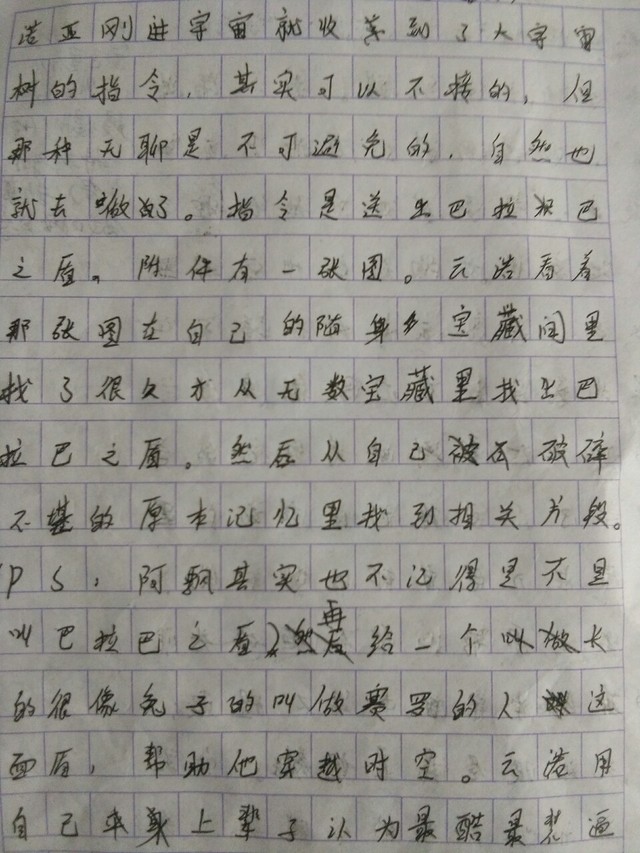 诺亚刚进宇宙就收到了大宇宙
树的指令，其实可以不接的，但
那种无聊是不可避免的，自然也
就去做了。指令是送出巴拉巴
之盾。附件有一张图。云诺看着
那张图在自己的随身宝藏间里
找了很久才从无数宝藏里找出巴
拉巴之盾。然后从自己破碎
不堪的原本记忆里找到相关片段。
(PS，阿飘其实也不记得是不是
叫巴拉巴之盾)再给一个长
的很像兔子的叫做赛罗的人这
面盾，帮助他穿越时空。云诺用
自己上辈子认为最酷最